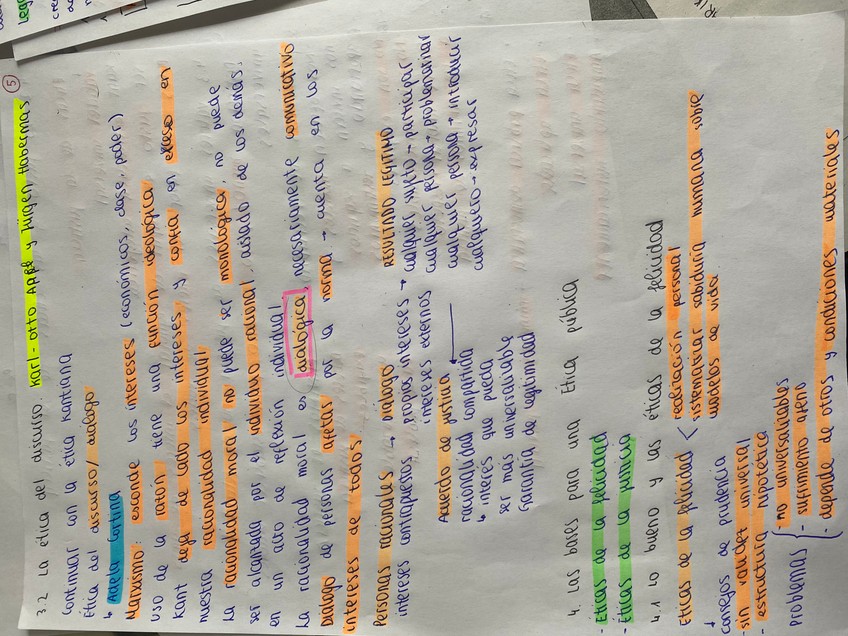 5
3.2 La ética del discurso. Karl-Otto Apel y Jürgen Habermas
Continuar con la ética Kantiana
Ética del discurso/diálogo
↳ Adela Cortina
Marxismo: esconde los intereses (económicos, clase, poder)
uso de la razón tiene una función ideológica.
Kant deja de lado los intereses y confía en exceso en
nuestra racionalidad individual
La racionalidad moral no puede ser monológica, no puede
ser alcanzada por el individuo racional aislado de los demás.
en un acto de reflexión individual
La racionalidad moral es dialógica, necesariamente comunicativo
Diálogo de personas afetas por la norma → cuenta en los
intereses de todos
Personas racionales → Diálogo RESULTADO LEGÍTIMO
intereses contrapuestos propios intereses → cualquier sujeto → participar
intereses externos cualquier persona → problematizar
Acuerdo de justicia cualquier persona → introducir
racionalidad compartida cualquiera → expresar
↳ interés que pueda
ser más universalizable
Garantía de legitimidad
4. Las bases para una Ética pública
- Éticas de la felicidad
- Éticas de la justicia
4.1 Lo bueno y las éticas de la felicidad
Éticas de la felicidad < realización personal
sistematizar sabiduría humana sobre
modelos de vida
↓
consejos de prudencia
- sin validez universal
- estructura hipotética
problemas { - no universalizables
- sufrimiento ajeno
- depende de otros y condiciones materiales